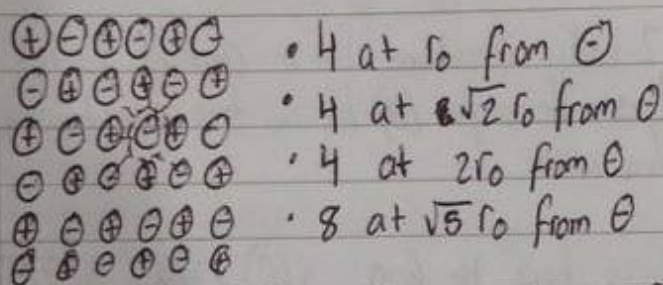 ⊕ ⊖ ⊕ ⊖ ⊕ ⊖
⊖ ⊕ ⊖ ⊕ ⊖ ⊕
⊕ ⊖ ⊕ ⊖ ⊕ ⊖
⊖ ⊕ ⊖ ⊕ ⊖ ⊕
⊕ ⊖ ⊕ ⊖ ⊕ ⊖
⊖ ⊕ ⊖ ⊕ ⊖ ⊕
• 4 at r₀ from ⊖
• 4 at √2 r₀ from ⊖
• 4 at 2r₀ from ⊖
• 8 at √5 r₀ from ⊖